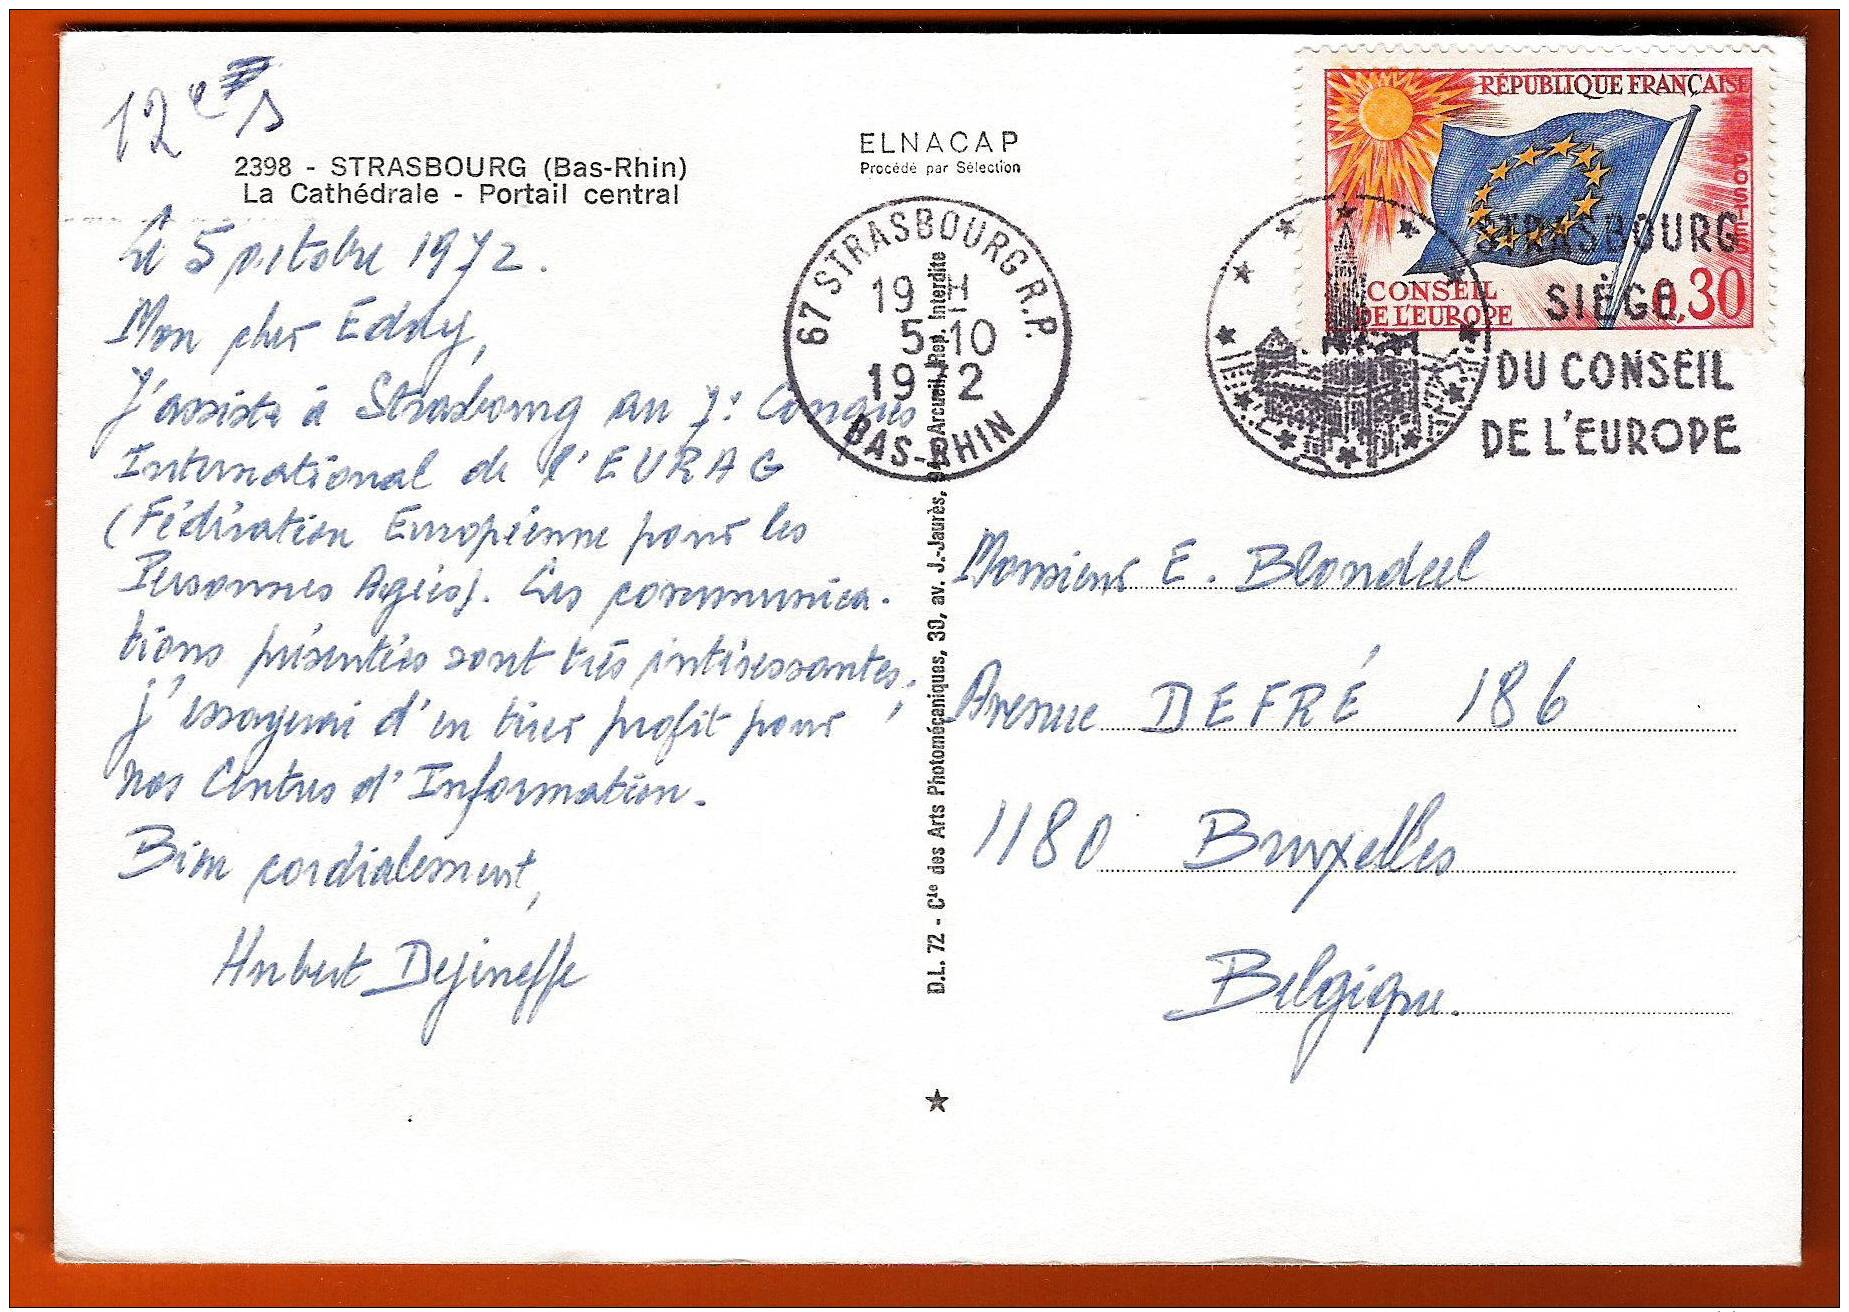 12 e s
2398 - STRASBOURG (Bas-Rhin)
La Cathédrale - Portail central
Le 5 octobre 1972.
Mon cher Eddy,
J'assiste à Strasbourg au 7e Congrès
International de l'EURAG
(Fédération Européenne pour les
Personnes Agées). Les communica-
tions présentées sont très intéressantes;
j'essayerai d'en tirer profit pour
nos Centres d'Information.
Bien cordialement,
Hubert Dejineffe
ELNACAP
Procédé par Sélection
67 STRASBOURG R.P.
19 H
5-10
1972
BAS-RHIN
D.L. 72 - Cie des Arts Photomécaniques, 30, av. J.-Jaurès, 94-Arcueil, Rep. Interdite
RÉPUBLIQUE FRANÇAISE
POSTES
CONSEIL
DE L'EUROPE
0,30
STRASBOURG
SIÈGE
DU CONSEIL
DE L'EUROPE
Monsieur E. Blondeel
Avenue DEFRÉ 186
1180 Bruxelles
Belgique.